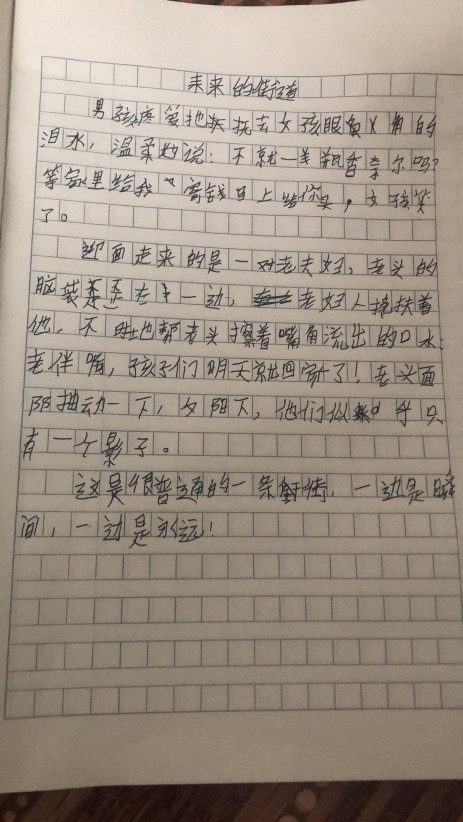 未来的街道
男孩疼爱地抚去女孩眼角的
泪水，温柔地说：不就一瓶香奈尔吗？
等家里给我寄钱马上给你买，女孩笑
了。
迎面走来的是一对老夫妇，老头的
脑袋歪在一边，老妇人搀扶着
他，不时地帮老头擦着嘴角流出的口水：
老伴啊，孩子们明天就回家了！老头面
部抽动一下，夕阳下，他们似乎只
有一个影子。
这是很普通的一条街，一边是瞬
间，一边是永远！